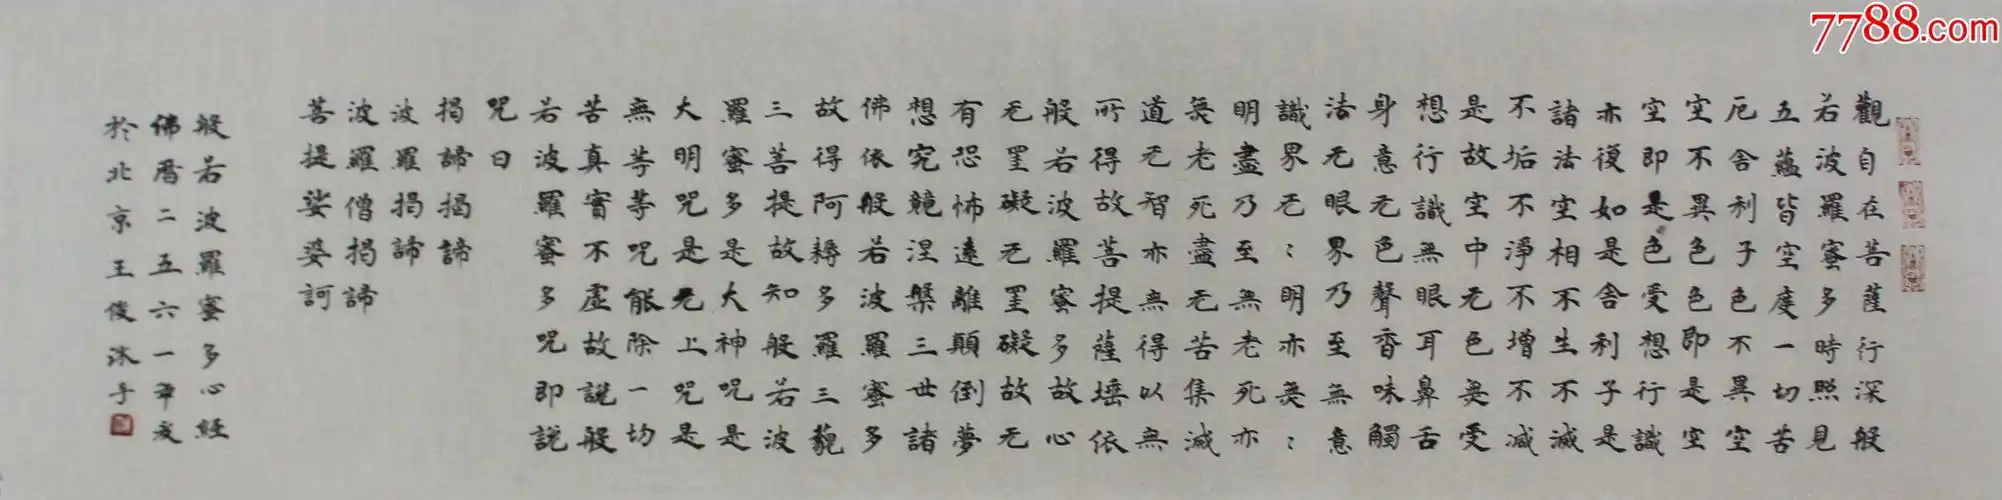 7788.com
觀自在菩薩行深般
若波羅蜜多時照見
五蘊皆空度一切苦
厄舍利子色不異空
空不異色色即是空
空即是色受想行識
亦復如是舍利子是
諸法空相不生不滅
不垢不淨不增不減
是故空中无色無受
想行識無眼耳鼻舌
身意无色聲香味觸
法无眼界乃至無意
識界无：明亦無：
明盡乃至無老死亦
無老死盡无苦集滅
道无智亦無得以無
所得故菩提薩埵依
般若波羅蜜多故心
无罣礙无罣礙故无
有恐怖遠離顛倒夢
想究竟涅槃三世諸
佛依般若波羅蜜多
故得阿耨多羅三藐
三菩提故知般若波
羅蜜多是大神咒是
大明咒是无上咒是
無等等咒能除一切
苦真實不虛故說般
若波羅蜜多咒即說
咒曰
揭諦揭諦
波羅揭諦
波羅僧揭諦
菩提娑婆訶
般若波羅蜜多心經
佛曆二五六一年
於北京王俊沐手